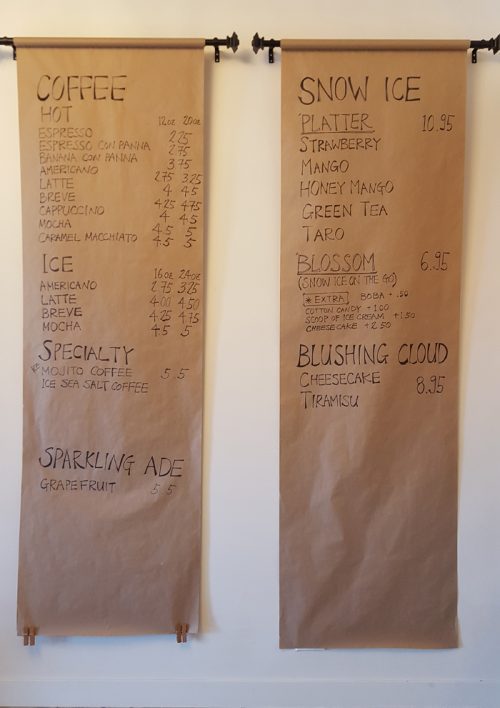 COFFEE
HOT
12oz 20oz
ESPRESSO 2.25
ESPRESSO CON PANNA 2.75
BANANA CON PANNA 3.75
AMERICANO 2.75 3.25
LATTE 4 4.5
BREVE 4.25 4.75
CAPPUCCINO 4 4.5
MOCHA 4.5 5
CARAMEL MACCHIATO 4.5 5
ICE
16oz 24oz
AMERICANO 2.75 3.25
LATTE 4.00 4.50
BREVE 4.25 4.75
MOCHA 4.5 5
SPECIALTY
MOJITO COFFEE 5.5
ICE SEA SALT COFFEE
SPARKLING ADE
GRAPEFRUIT 5.5
SNOW ICE
PLATTER 10.95
STRAWBERRY
MANGO
HONEY MANGO
GREEN TEA
TARO
BLOSSOM 6.95
(SNOW ICE ON THE GO)
*EXTRA BOBA + .50
COTTON CANDY +1.00
SCOOP OF ICE CREAM +1.50
CHEESECAKE +2.50
BLUSHING CLOUD
CHEESECAKE 8.95
TIRAMISU